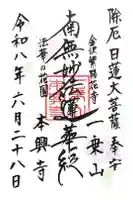 除厄日蓮大菩薩奉安
一乗山
南無妙法蓮華経
法華の花園
本興寺
令和八年六月二十八日